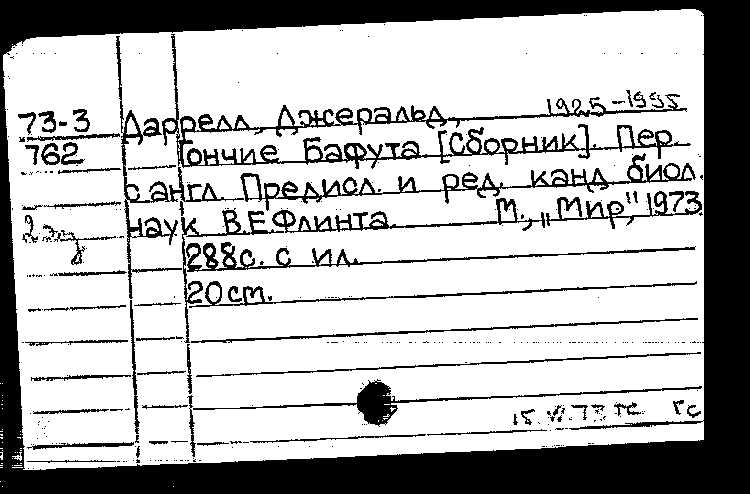 73-3 Даррелл, Джеральд, 1925-1995
762 Гончие Бафута [Сборник]. Пер.
с англ. Предисл. и ред. канд. биол.
2 экз наук В.Е.Флинта. М., „Мир", 1973.
288с. с ил.
20см.
15.VI.73